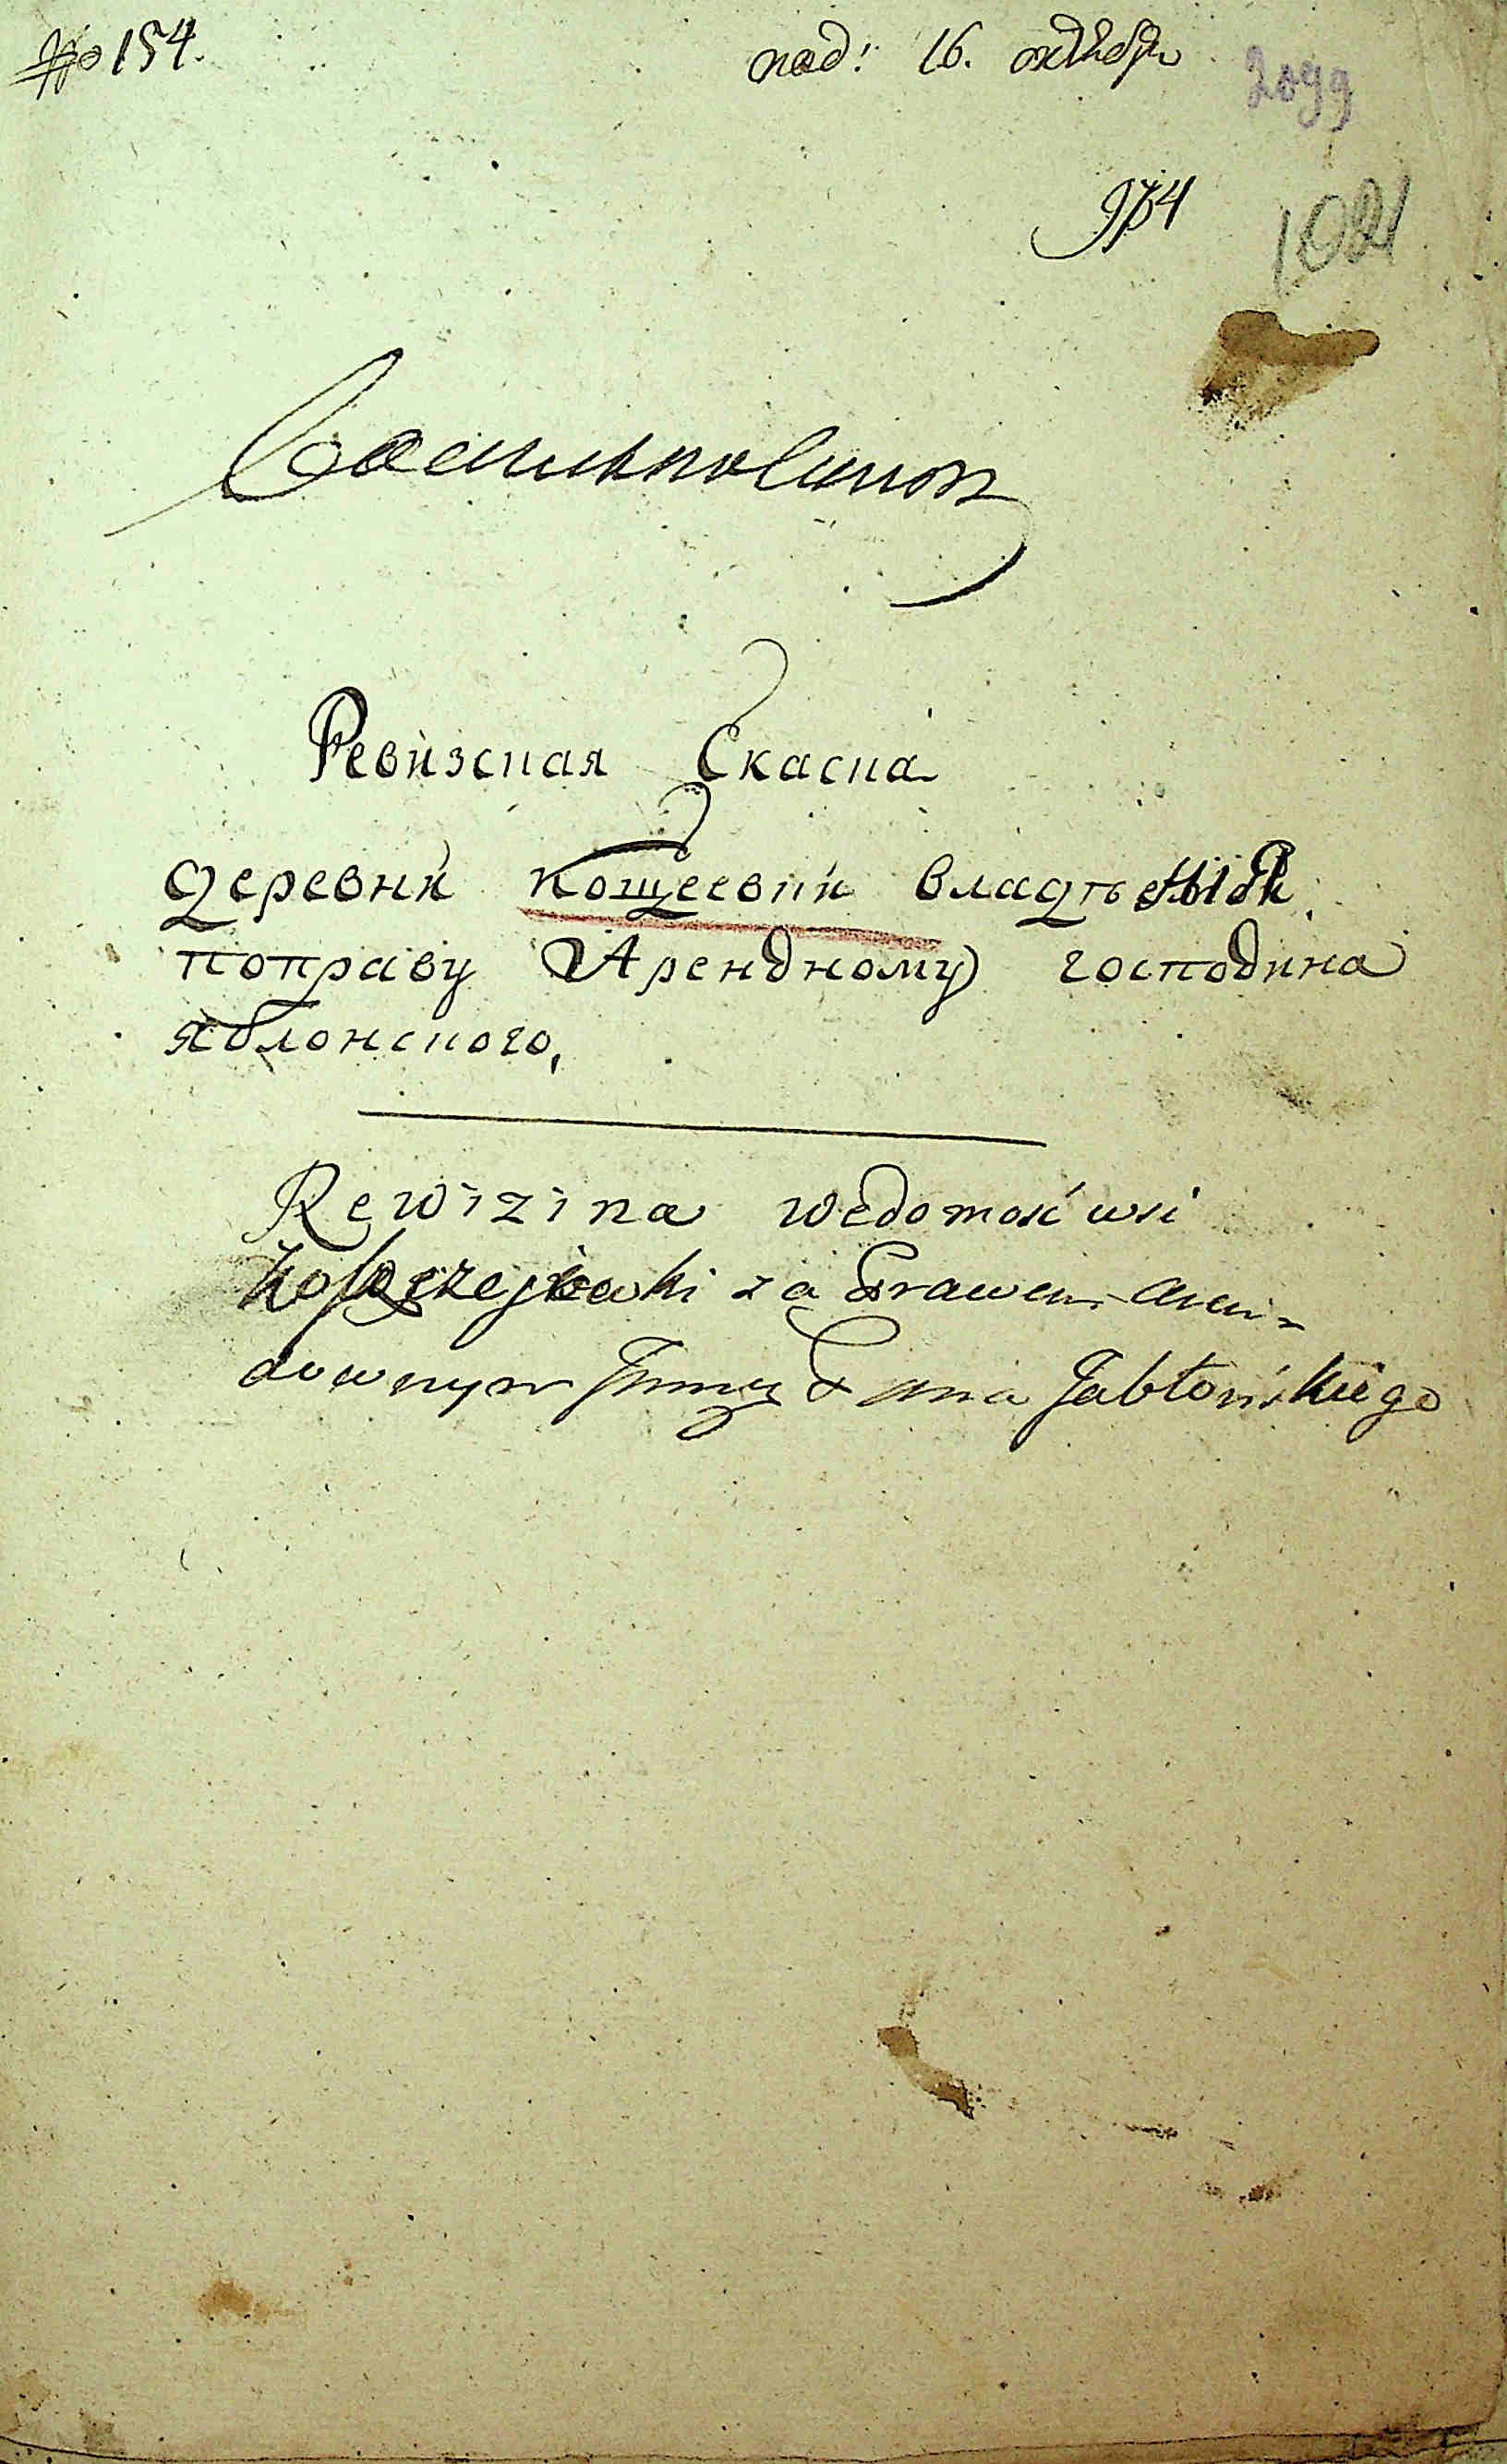 № 154.
под: 16. октября
2099
974
1021
Васильковской
Ревизская Скаска
деревни Кощеевки владѣемой
поправу Арендному господина
яблонского,
Rewizina wedomość wsi
Koszczejowki za Prawem aren-
downym Jmsc Pana Jabłońskiego